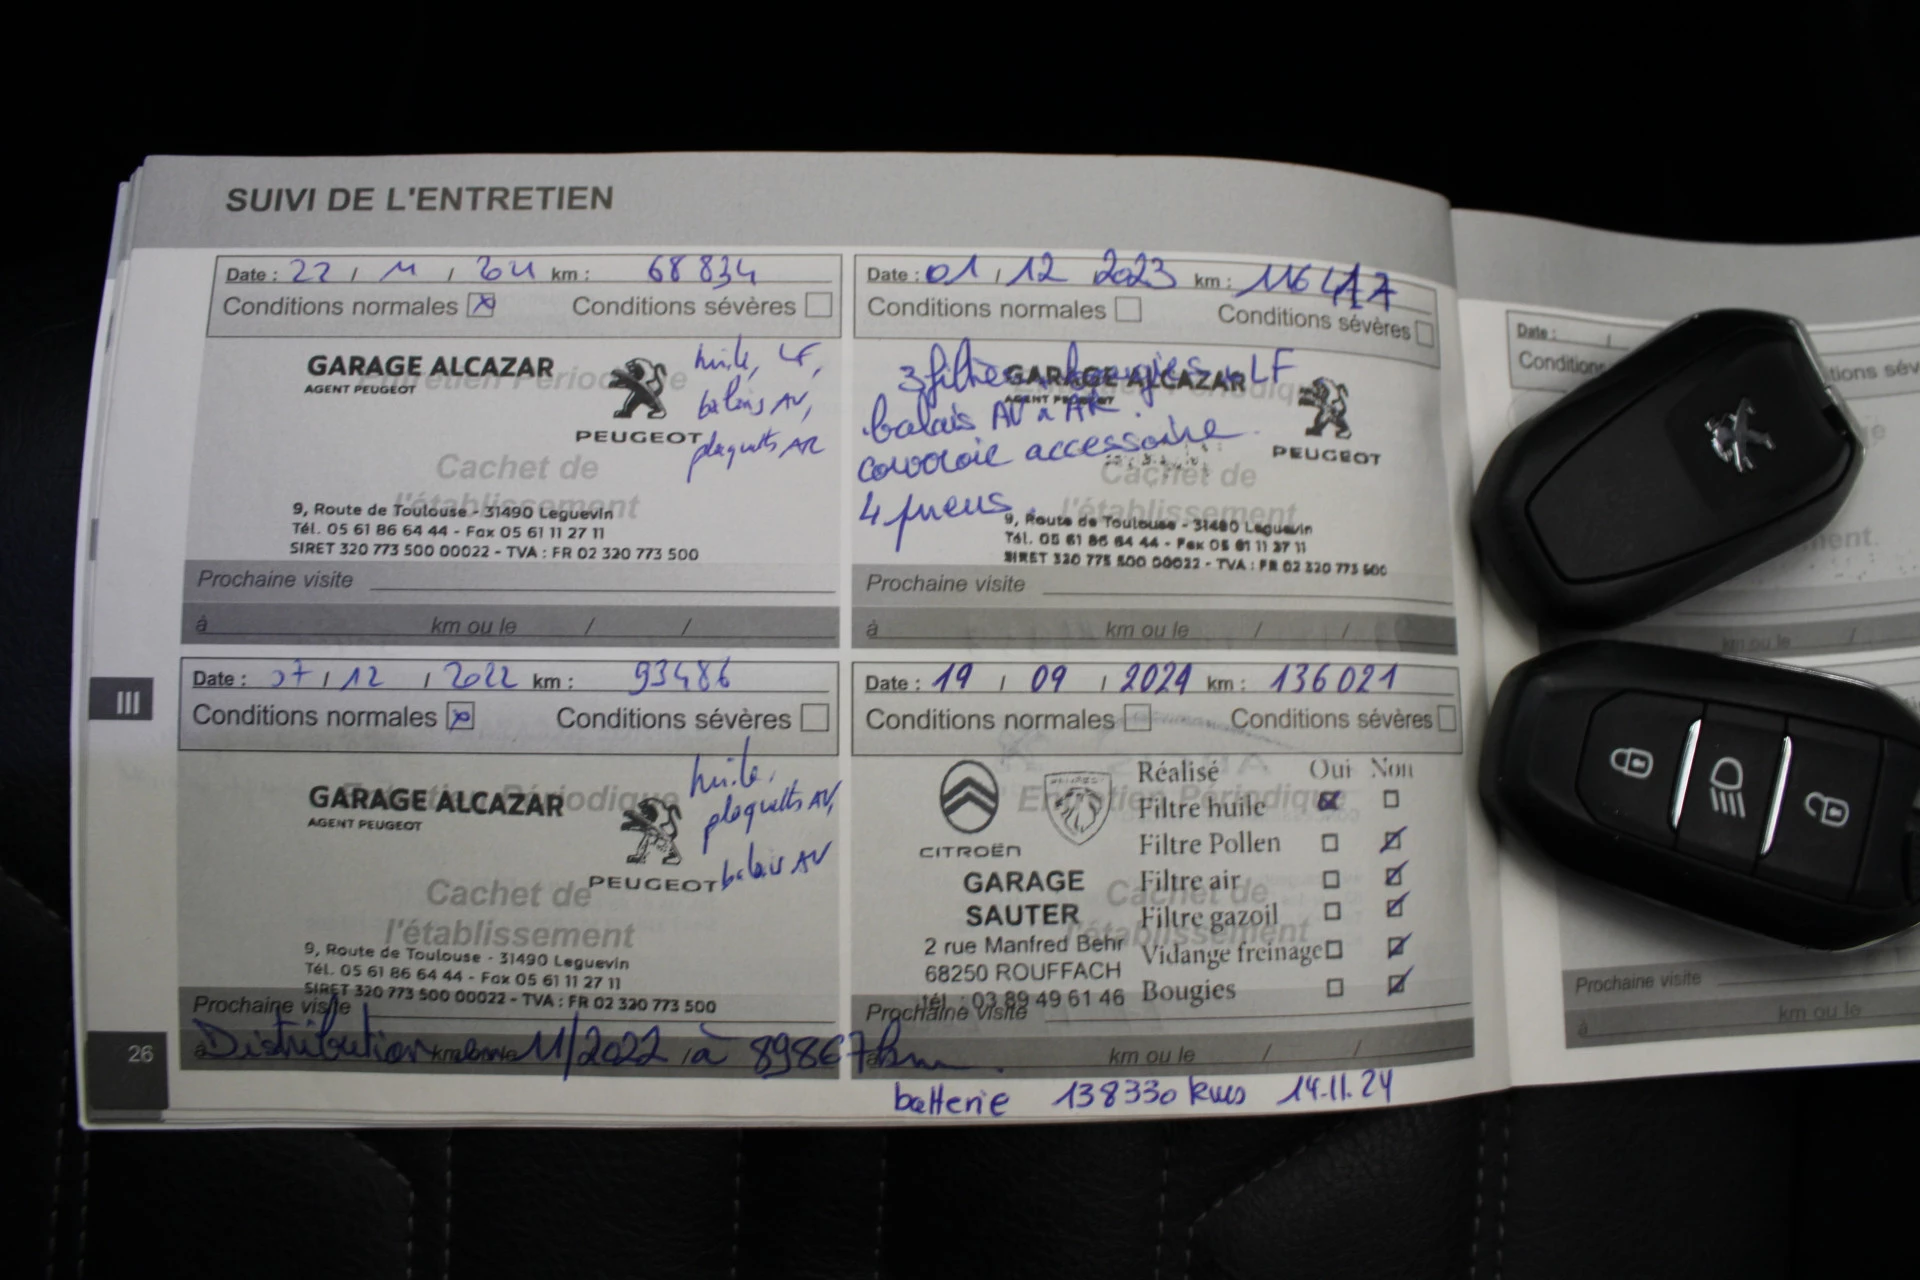 SUIVI DE L'ENTRETIEN
Date : 22 / 11 / km : 68 834
Conditions normales ☒ Conditions sévères ☐
GARAGE ALCAZAR
AGENT PEUGEOT
PEUGEOT
huile, LF,
balais AV,
plaquetts AR
Cachet de
l'établissement
9, Route de Toulouse - 31490 Leguevin
Tél. 05 61 86 64 44 - Fax 05 61 11 27 11
SIRET 320 773 500 00022 - TVA : FR 02 320 773 500
Prochaine visite
à km ou le / /
Date : 01 / 12 2023 km : 116
Conditions normales ☐ Conditions sévères ☐
3 filtres, bougies, LF
GARAGE ALCAZAR
AGENT PEUGEOT
balais AV AR.
courroie accessoire
4 pneus.
PEUGEOT
Cachet de
l'établissement
9, Route de Toulouse - 31490 Leguevin
Tél. 05 61 86 64 44 - Fax 05 61 11 27 11
SIRET 320 773 500 00022 - TVA : FR 02 320 773 500
Prochaine visite
à km ou le / /
III
Date : 07 / 12 / 2022 km : 93486
Conditions normales ☒ Conditions sévères ☐
Entretien Périodique
GARAGE ALCAZAR
AGENT PEUGEOT
PEUGEOT
huile,
plaquetts AV,
balais AV
Cachet de
l'établissement
9, Route de Toulouse - 31490 Leguevin
Tél. 05 61 86 64 44 - Fax 05 61 11 27 11
SIRET 320 773 500 00022 - TVA : FR 02 320 773 500
Prochaine visite
à km ou le
Distribution en 11/2022 à 89867 km.
26
Date : 19 / 09 / 2024 km : 136 021
Conditions normales ☐ Conditions sévères ☐
Entretien Périodique
CITROËN
GARAGE
SAUTER
2 rue Manfred Behr
68250 ROUFFACH
tél. : 03 89 49 61 46
Réalisé Oui Non
Filtre huile ☒ ☐
Filtre Pollen ☐ ☒
Filtre air ☐ ☒
Filtre gazoil ☐ ☒
Vidange freinage ☐ ☒
Bougies ☐ ☒
Cachet de
l'établissement
Prochaine visite
km ou le / /
batterie 138330 kms 14.11.24
Date : /
Prochaine visite
à km ou le